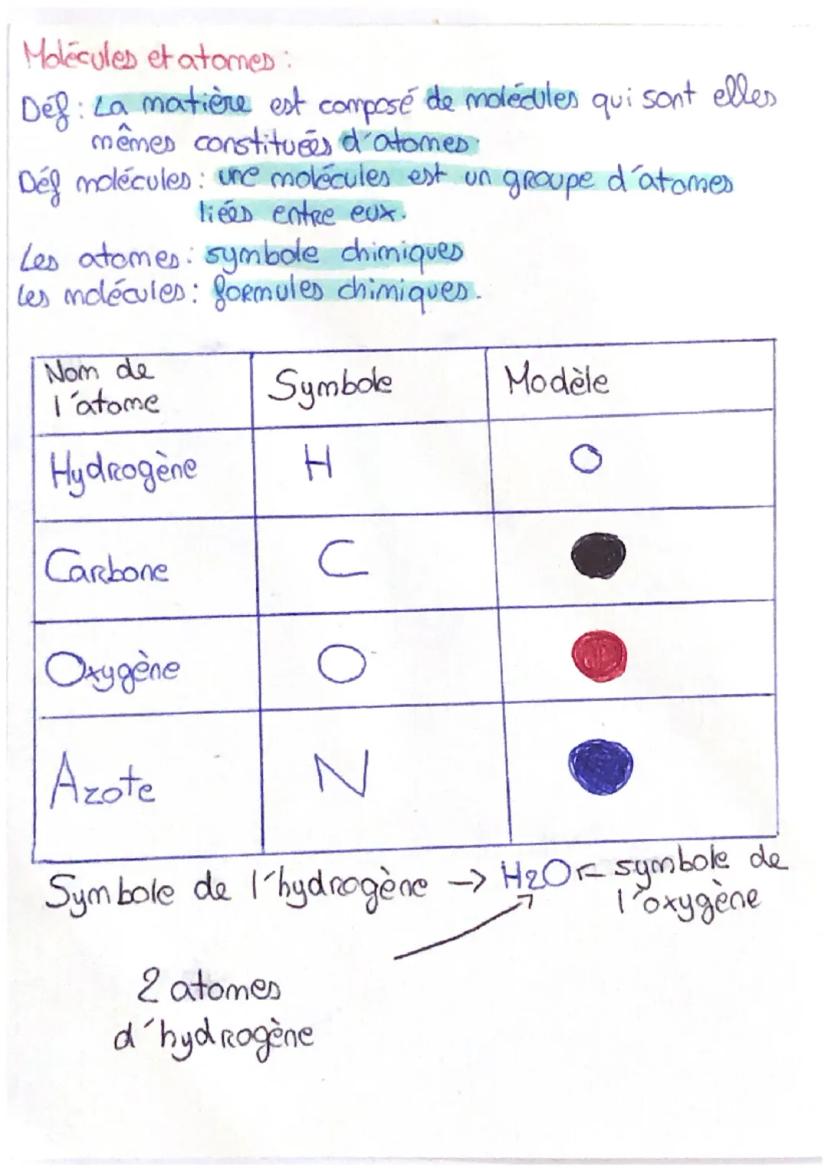 Molécules et atomes :
Déf : La matière est composé de molécules qui sont elles
mêmes constituées d'atomes
Déf molécules : une molécules est un groupe d'atomes
liées entre eux.
Les atomes : symbole chimiques
Les molécules : formules chimiques.
Nom de l'atome Symbole Modèle
Hydrogène H
Carbone C
Oxygène O
Azote N
Symbole de l'hydrogène → H2O ← symbole de
l'oxygène
2 atomes
d'hydrogène